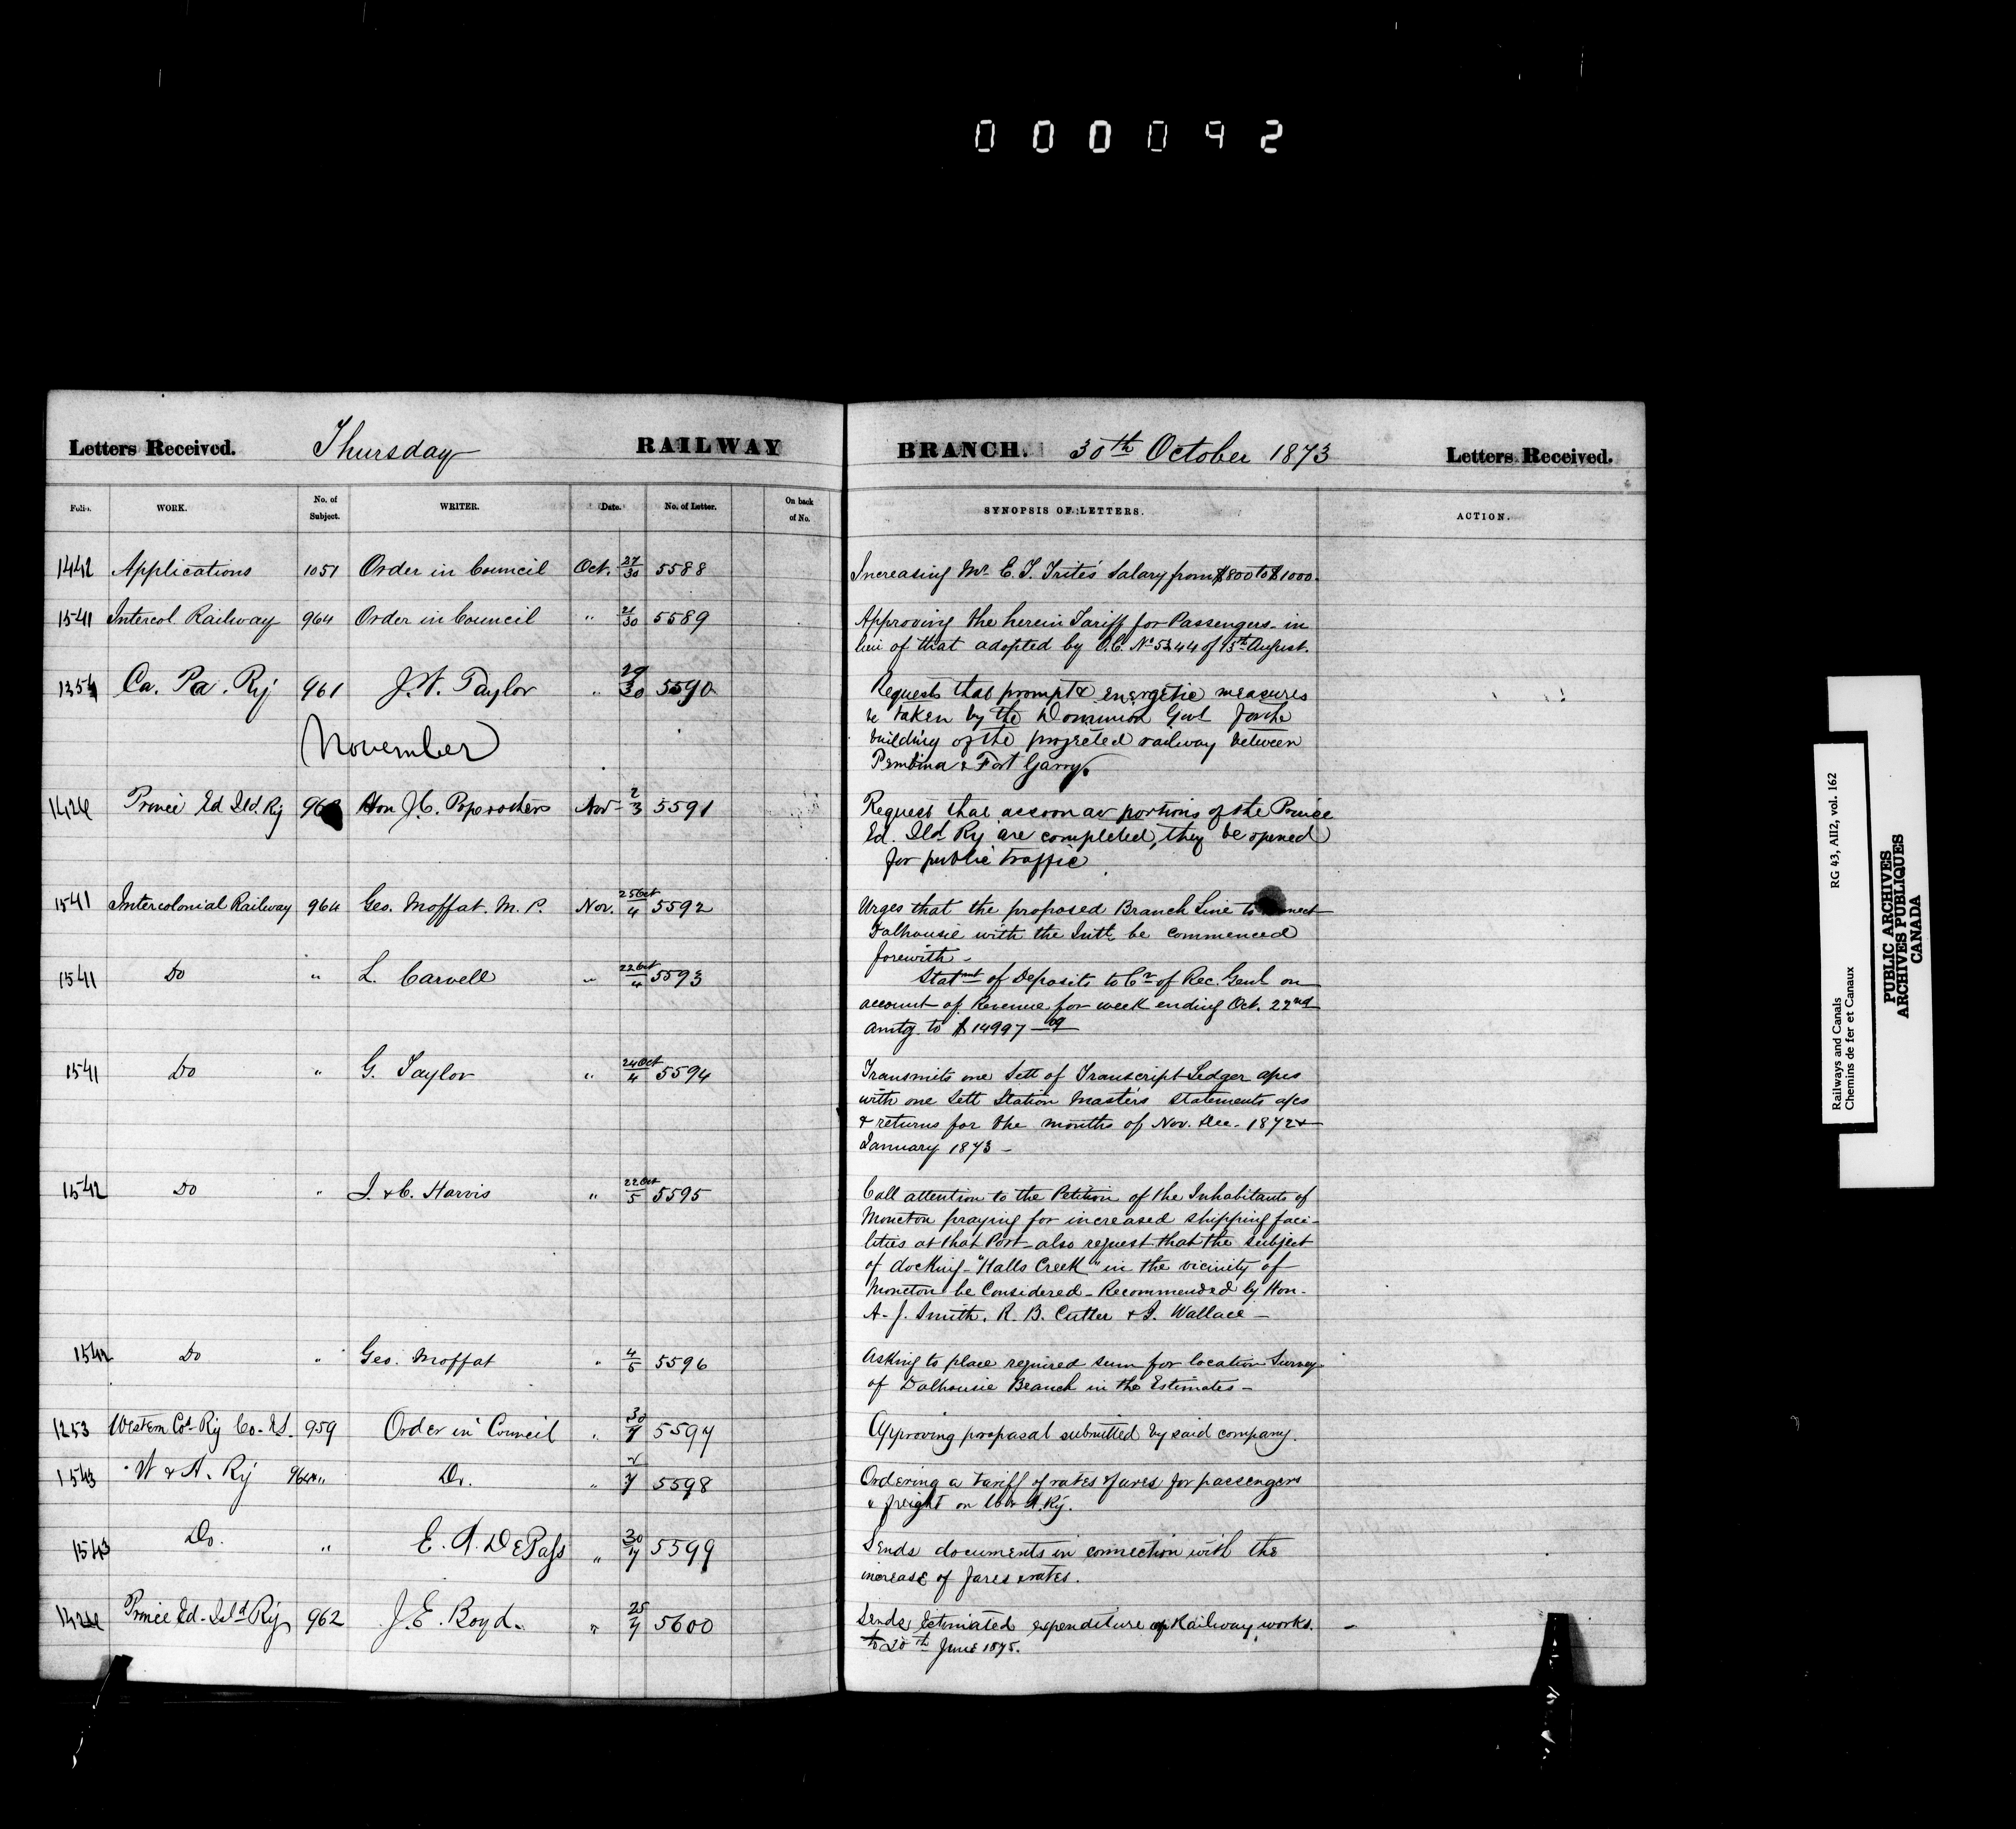 000092
Letters Received. Thursday RAILWAY BRANCH. 30th October 1873 Letters Received.
Folio. WORK. No. of Subject. WRITER. Date. No. of Letter. On back of No. SYNOPSIS OF LETTERS. ACTION.
1442 Applications 1051 Order in Council Oct. 27/30 5588 Increasing Mr. C. T. Trites' Salary from $800 to $1000.
1541 Intercol Railway 964 Order in Council " 21/30 5589 Approving the herein Tariff for Passengers in
lieu of that adopted by O.C. No 5344 of 15th August.
1354 Ca. Pa. Ry 961 J. W. Taylor " 29/30 5590 Requests that prompt & energetic measures
be taken by the Dominion Govt for the
November
building of the projected railway between
Pembina & Fort Garry.
1424 Prince Ed Ild. Ry 962 Hon J. C. Pope & others Nov 2/3 5591 Request that as soon as portions of the Prince
Ed. Ild Ry are completed, they be opened
for public traffic
1541 Intercolonial Railway 964 Geo. Moffat. M.P. Nov. 25 Oct/4 5592 Urges that the proposed Branch Line to connect
Dalhousie with the Intl. be commenced
forewith -
1541 Do " L. Carvell " 22 Oct/4 5593 Statmnt of Deposits to Cr of Rec. Genl on
account of Revenue for week ending Oct. 22nd
amtg to $14997 09
1541 Do " G. Taylor " 24 Oct/4 5594 Transmits one Sett of Transcript Ledger a/cs
with one Sett Station Masters Statements a/cs
& returns for the months of Nov. Dec. 1872 &
January 1873 -
1542 Do " J. & C. Harris " 22 Oct/5 5595 Call attention to the Petition of the Inhabitants of
Moncton praying for increased shipping faci-
lities at that Port - also request that the subject
of docking "Halls Creek" in the vicinity of
Moncton be Considered - Recommended by Hon.
A. J. Smith, R. B. Cutler & J. Wallace -
1542 Do " Geo. Moffat " 4/5 5596 Asking to place required sum for location Survey
of Dalhousie Branch in the Estimates -
1253 Western Cos Ry Co. N.S. 959 Order in Council " 30/7 5597 Approving proposal submitted by said company.
1543 W & A. Ry 964 " Do. " 7 5598 Ordering a tariff of rates & fares for passengers
& freight on W & A. Ry.
1543 Do. " E. A. DePass " 30/7 5599 Sends documents in connection with the
increase of fares & rates.
1424 Prince Ed. Isld Ry 962 J. E. Boyd. " 25/7 5600 Sends Estimated expenditure of Railway works.
to 30th June 1875.
Railways and Canals RG 43, AII2, vol. 162
Chemins de fer et Canaux
PUBLIC ARCHIVES
ARCHIVES PUBLIQUES
CANADA